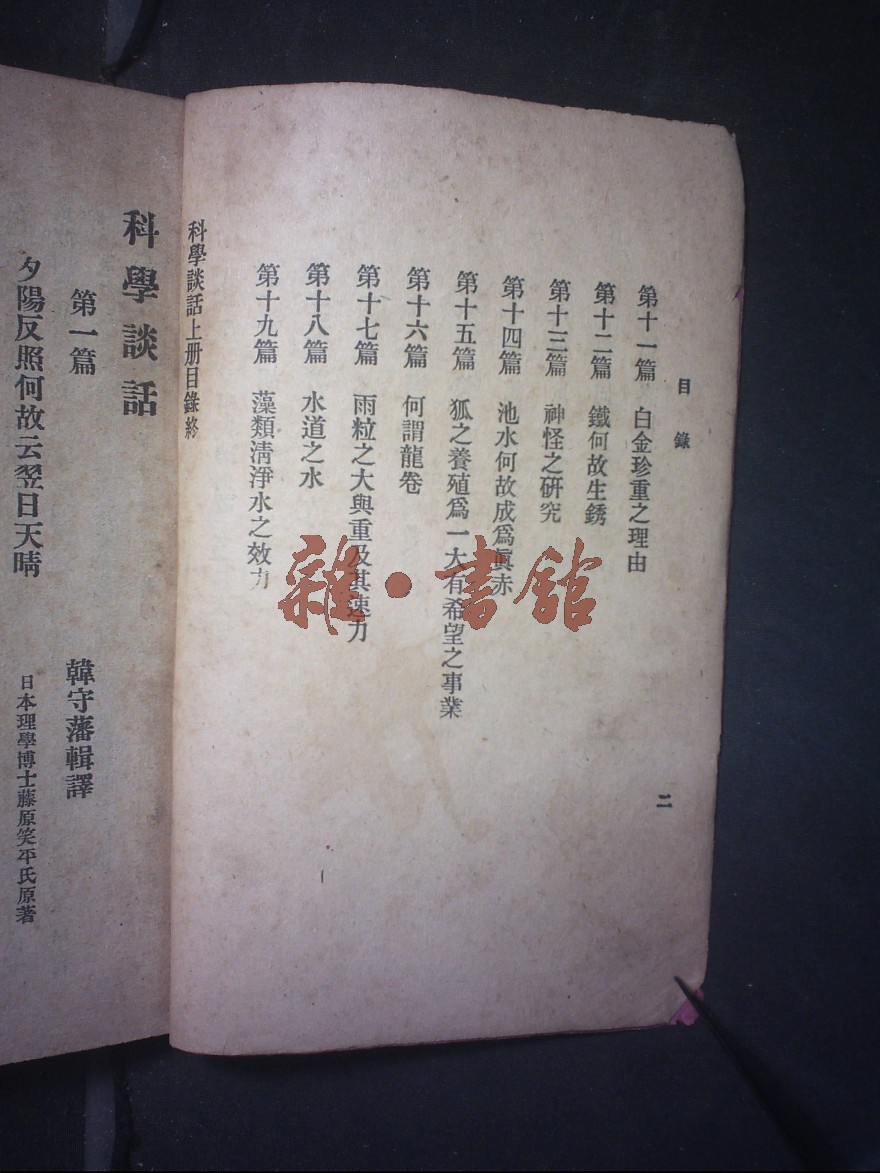 目錄
第十一篇 白金珍重之理由
第十二篇 鐵何故生銹
第十三篇 神怪之研究
第十四篇 池水何故成爲眞赤
第十五篇 狐之養殖爲一大有希望之事業
第十六篇 何謂龍卷
第十七篇 雨粒之大與重及其速力
第十八篇 水道之水
第十九篇 藻類淸淨水之效力
科學談話上册目錄終
二
雜·書館
科學談話
第一篇 韓守藩輯譯
夕陽反照何故云翌日天晴 日本理學博士藤原笑平氏原著